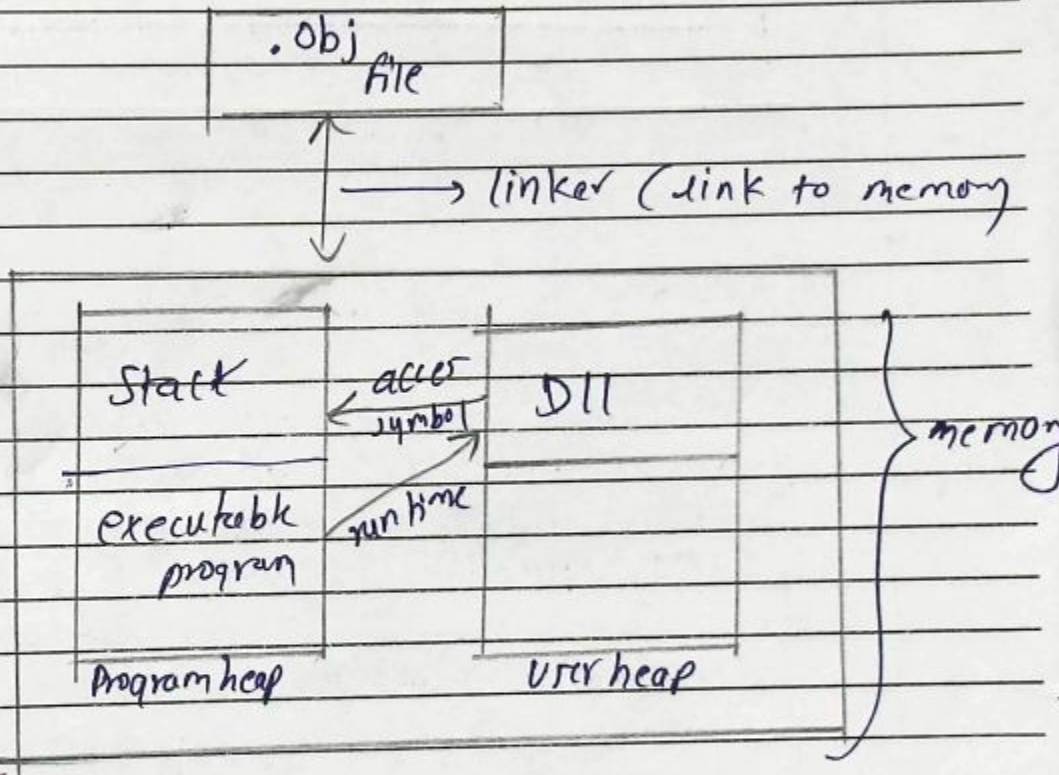 .Obj
file
linker (link to memory
Stack
acces
symbol
Dll
memory
executable
program
runtime
Program heap
User heap